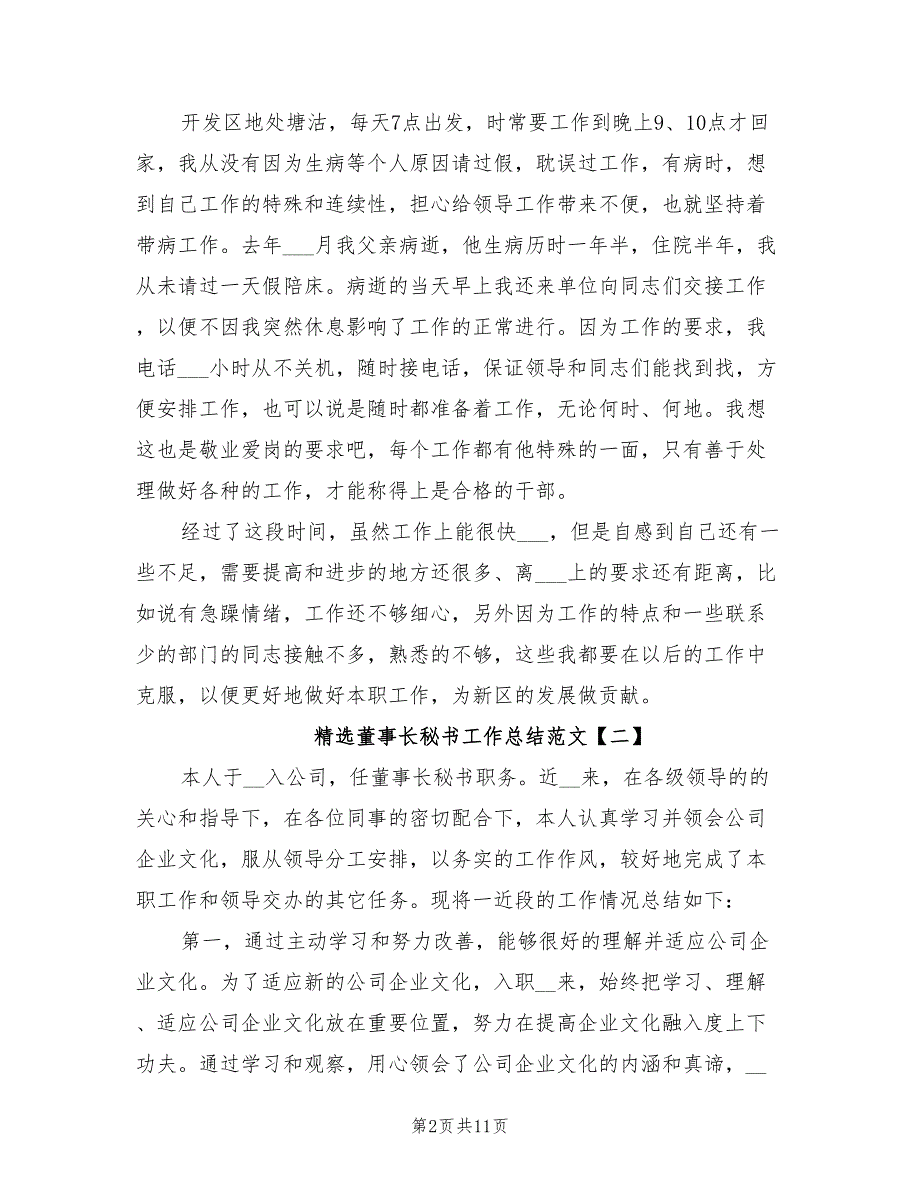 开发区地处塘沽，每天7点出发，时常要工作到晚上9、10点才回
家，我从没有因为生病等个人原因请过假，耽误过工作，有病时，想
到自己工作的特殊和连续性，担心给领导工作带来不便，也就坚持着
带病工作。去年___月我父亲病逝，他生病历时一年半，住院半年，我
从未请过一天假陪床。病逝的当天早上我还来单位向同志们交接工作
，以便不因我突然休息影响了工作的正常进行。因为工作的要求，我
电话___小时从不关机，随时接电话，保证领导和同志们能找到找，方
便安排工作，也可以说是随时都准备着工作，无论何时、何地。我想
这也是敬业爱岗的要求吧，每个工作都有他特殊的一面，只有善于处
理做好各种的工作，才能称得上是合格的干部。
经过了这段时间，虽然工作上能很快___，但是自感到自己还有一
些不足，需要提高和进步的地方还很多、离___上的要求还有距离，比
如说有急躁情绪，工作还不够细心，另外因为工作的特点和一些联系
少的部门的同志接触不多，熟悉的不够，这些我都要在以后的工作中
克服，以便更好地做好本职工作，为新区的发展做贡献。
精选董事长秘书工作总结范文【二】
本人于__入公司，任董事长秘书职务。近__来，在各级领导的的
关心和指导下，在各位同事的密切配合下，本人认真学习并领会公司
企业文化，服从领导分工安排，以务实的工作作风，较好地完成了本
职工作和领导交办的其它任务。现将一近段的工作情况总结如下：
第一，通过主动学习和努力改善，能够很好的理解并适应公司企
业文化。为了适应新的公司企业文化，入职__来，始终把学习、理解
、适应公司企业文化放在重要位置，努力在提高企业文化融入度上下
功夫。通过学习和观察，用心领会了公司企业文化的内涵和真谛，__
第2页共11页